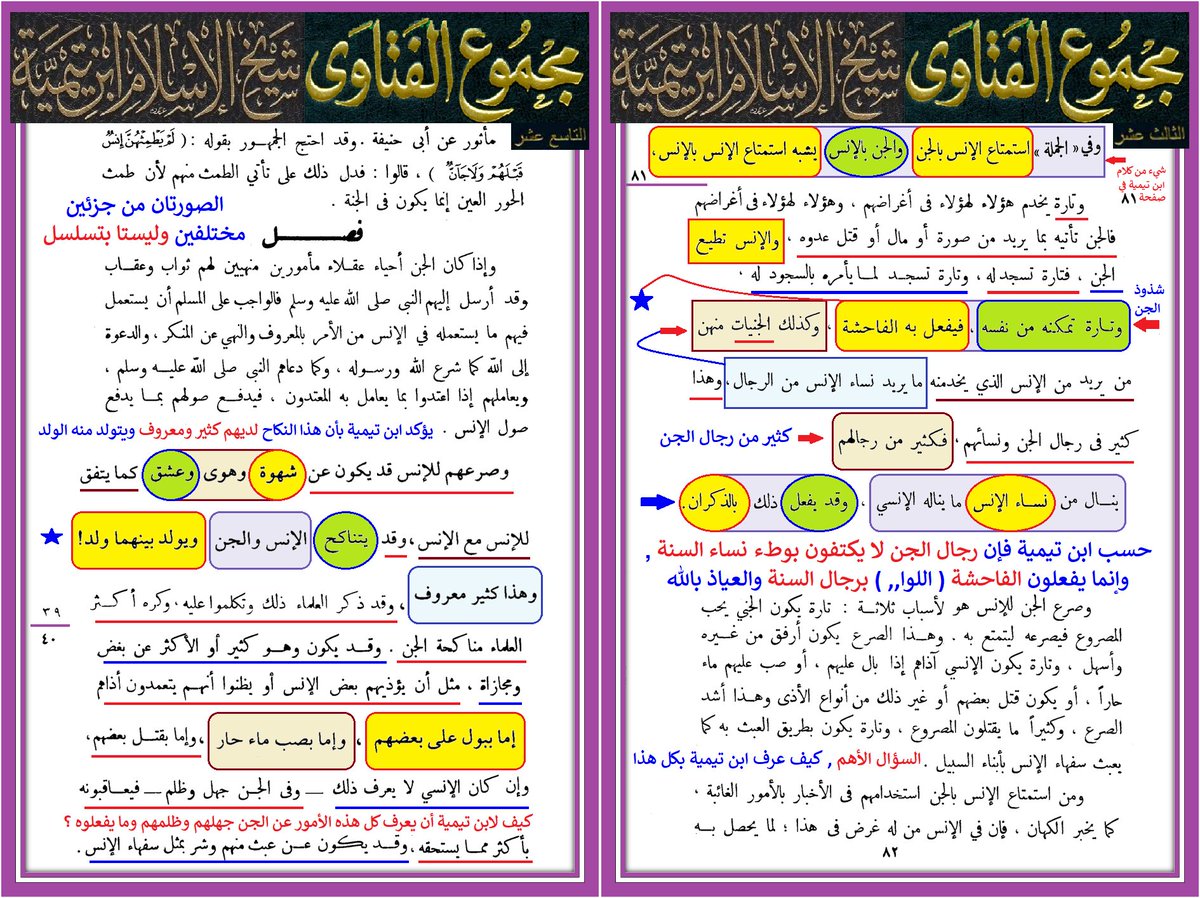 مجموع الفتاوى شيخ الإسلام ابن تيمية
الثالث عشر
وفي « الجملة » استمتاع الإنس بالجن والجن بالإنس يشبه استمتاع الإنس بالإنس،
٨١
شيء من كلام
ابن تيمية في
صفحة ٨١
وتارة يخدم هؤلاء لهؤلاء فى أغراضهم ، وهؤلاء لهؤلاء فى أغراضهم
فالجن تأتيه بما يريد من صورة أو مال أو قتل عدوه ، والإنس تطيع
الجن ، فتارة تسجد له ، وتارة تسجد لما يأمره بالسجود له ،
شذوذ
الجن
وتارة تمكنه من نفسه ، فيفعل به الفاحشة ، وكذلك الجنيات منهن
من يريد من الإنس الذي يخدمنه ما يريد نساء الإنس من الرجال، وهذا
كثير فى رجال الجن ونسائهم، فكثير من رجالهم
كثير من رجال الجن
ينال من نساء الإنس ما يناله الإنسي ، وقد يفعل ذلك بالذكران .
حسب ابن تيمية فإن رجال الجن لا يكتفون بوطء نساء السنة ,
وإنما يفعلون الفاحشة ( اللوا,, ) برجال السنة والعياذ بالله
وصرع الجن للإنس هو لأسباب ثلاثة : تارة يكون الجني يحب
المصروع فيصرعه ليتمتع به . وهذا الصرع يكون أرفق من غيره
وأسهل ، وتارة يكون الإنسي آذاهم إذا بال عليهم ، أو صب عليهم ماء
حاراً ، أو يكون قتل بعضهم أو غير ذلك من أنواع الأذى وهذا أشد
الصرع ، وكثيراً ما يقتلون المصروع ، وتارة يكون بطريق العبث به كما
يعبث سفهاء الإنس بأبناء السبيل . السؤال الأهم , كيف عرف ابن تيمية بكل هذا
ومن استمتاع الإنس بالجن استخدامهم فى الأخبار بالأمور الغائبة ،
كما يخبر الكهان ، فإن فى الإنس من له غرض فى هذا ؛ لما يحصل به
٨٢
مجموع الفتاوى شيخ الإسلام ابن تيمية
التاسع عشر
مأثور عن أبى حنيفة . وقد احتج الجمهور بقوله : ( لَمْ يَطْمِثْهُنَّ إِنسٌ
قَبْلَهُمْ وَلَا جَانٌّ ) ، قالوا : فدل ذلك على تأتي الطمث منهم لأن طمث
الحور العين إنما يكون فى الجنة .
الصورتان من جزئين
مختلفين وليستا بتسلسل
فصل
وإذا كان الجن أحياء عقلاء مأمورين منهيين لهم ثواب وعقاب
وقد أرسل إليهم النبى صلى الله عليه وسلم فالواجب على المسلم أن يستعمل
فيهم ما يستعمله فى الإنس من الأمر بالمعروف والنهي عن المنكر ، والدعوة
إلى الله كما شرع الله ورسوله ، وكما دعاهم النبي صلى الله عليه وسلم ،
ويعاملهم إذا اعتدوا بما يعامل به المعتدون ، فيدفع صولهم بما يدفع
صول الإنس . يؤكد ابن تيمية بأن هذا النكاح لديهم كثير ومعروف ويتولد منه الولد
وصرعهم للإنس قد يكون عن شهوة وهوى وعشق كما يتفق
للإنس مع الإنس ، وقد يتناكح الإنس والجن ويولد بينهما ولد!
وهذا كثير معروف ، وقد ذكر العلماء ذلك وتكلموا عليه، وكره أكثر
٣٩
٤٠
العلماء مناكحة الجن . وقد يكون وهو كثير أو الأكثر عن بغض
ومجازاة ، مثل أن يؤذيهم بعض الإنس أو يظنوا أنهم يتعمدون أذاهم
إما ببول على بعضهم ، وإما بصب ماء حار ، وإما بقتل بعضهم،
وإن كان الإنسي لا يعرف ذلك — وفى الجن جهل وظلم — فيعاقبونه
كيف لابن تيمية أن يعرف كل هذه الأمور عن الجن جهلهم وظلمهم وما يفعلوه ؟
بأكثر مما يستحقه ، وقد يكون عن عبث منهم وشر بمثل سفهاء الإنس .